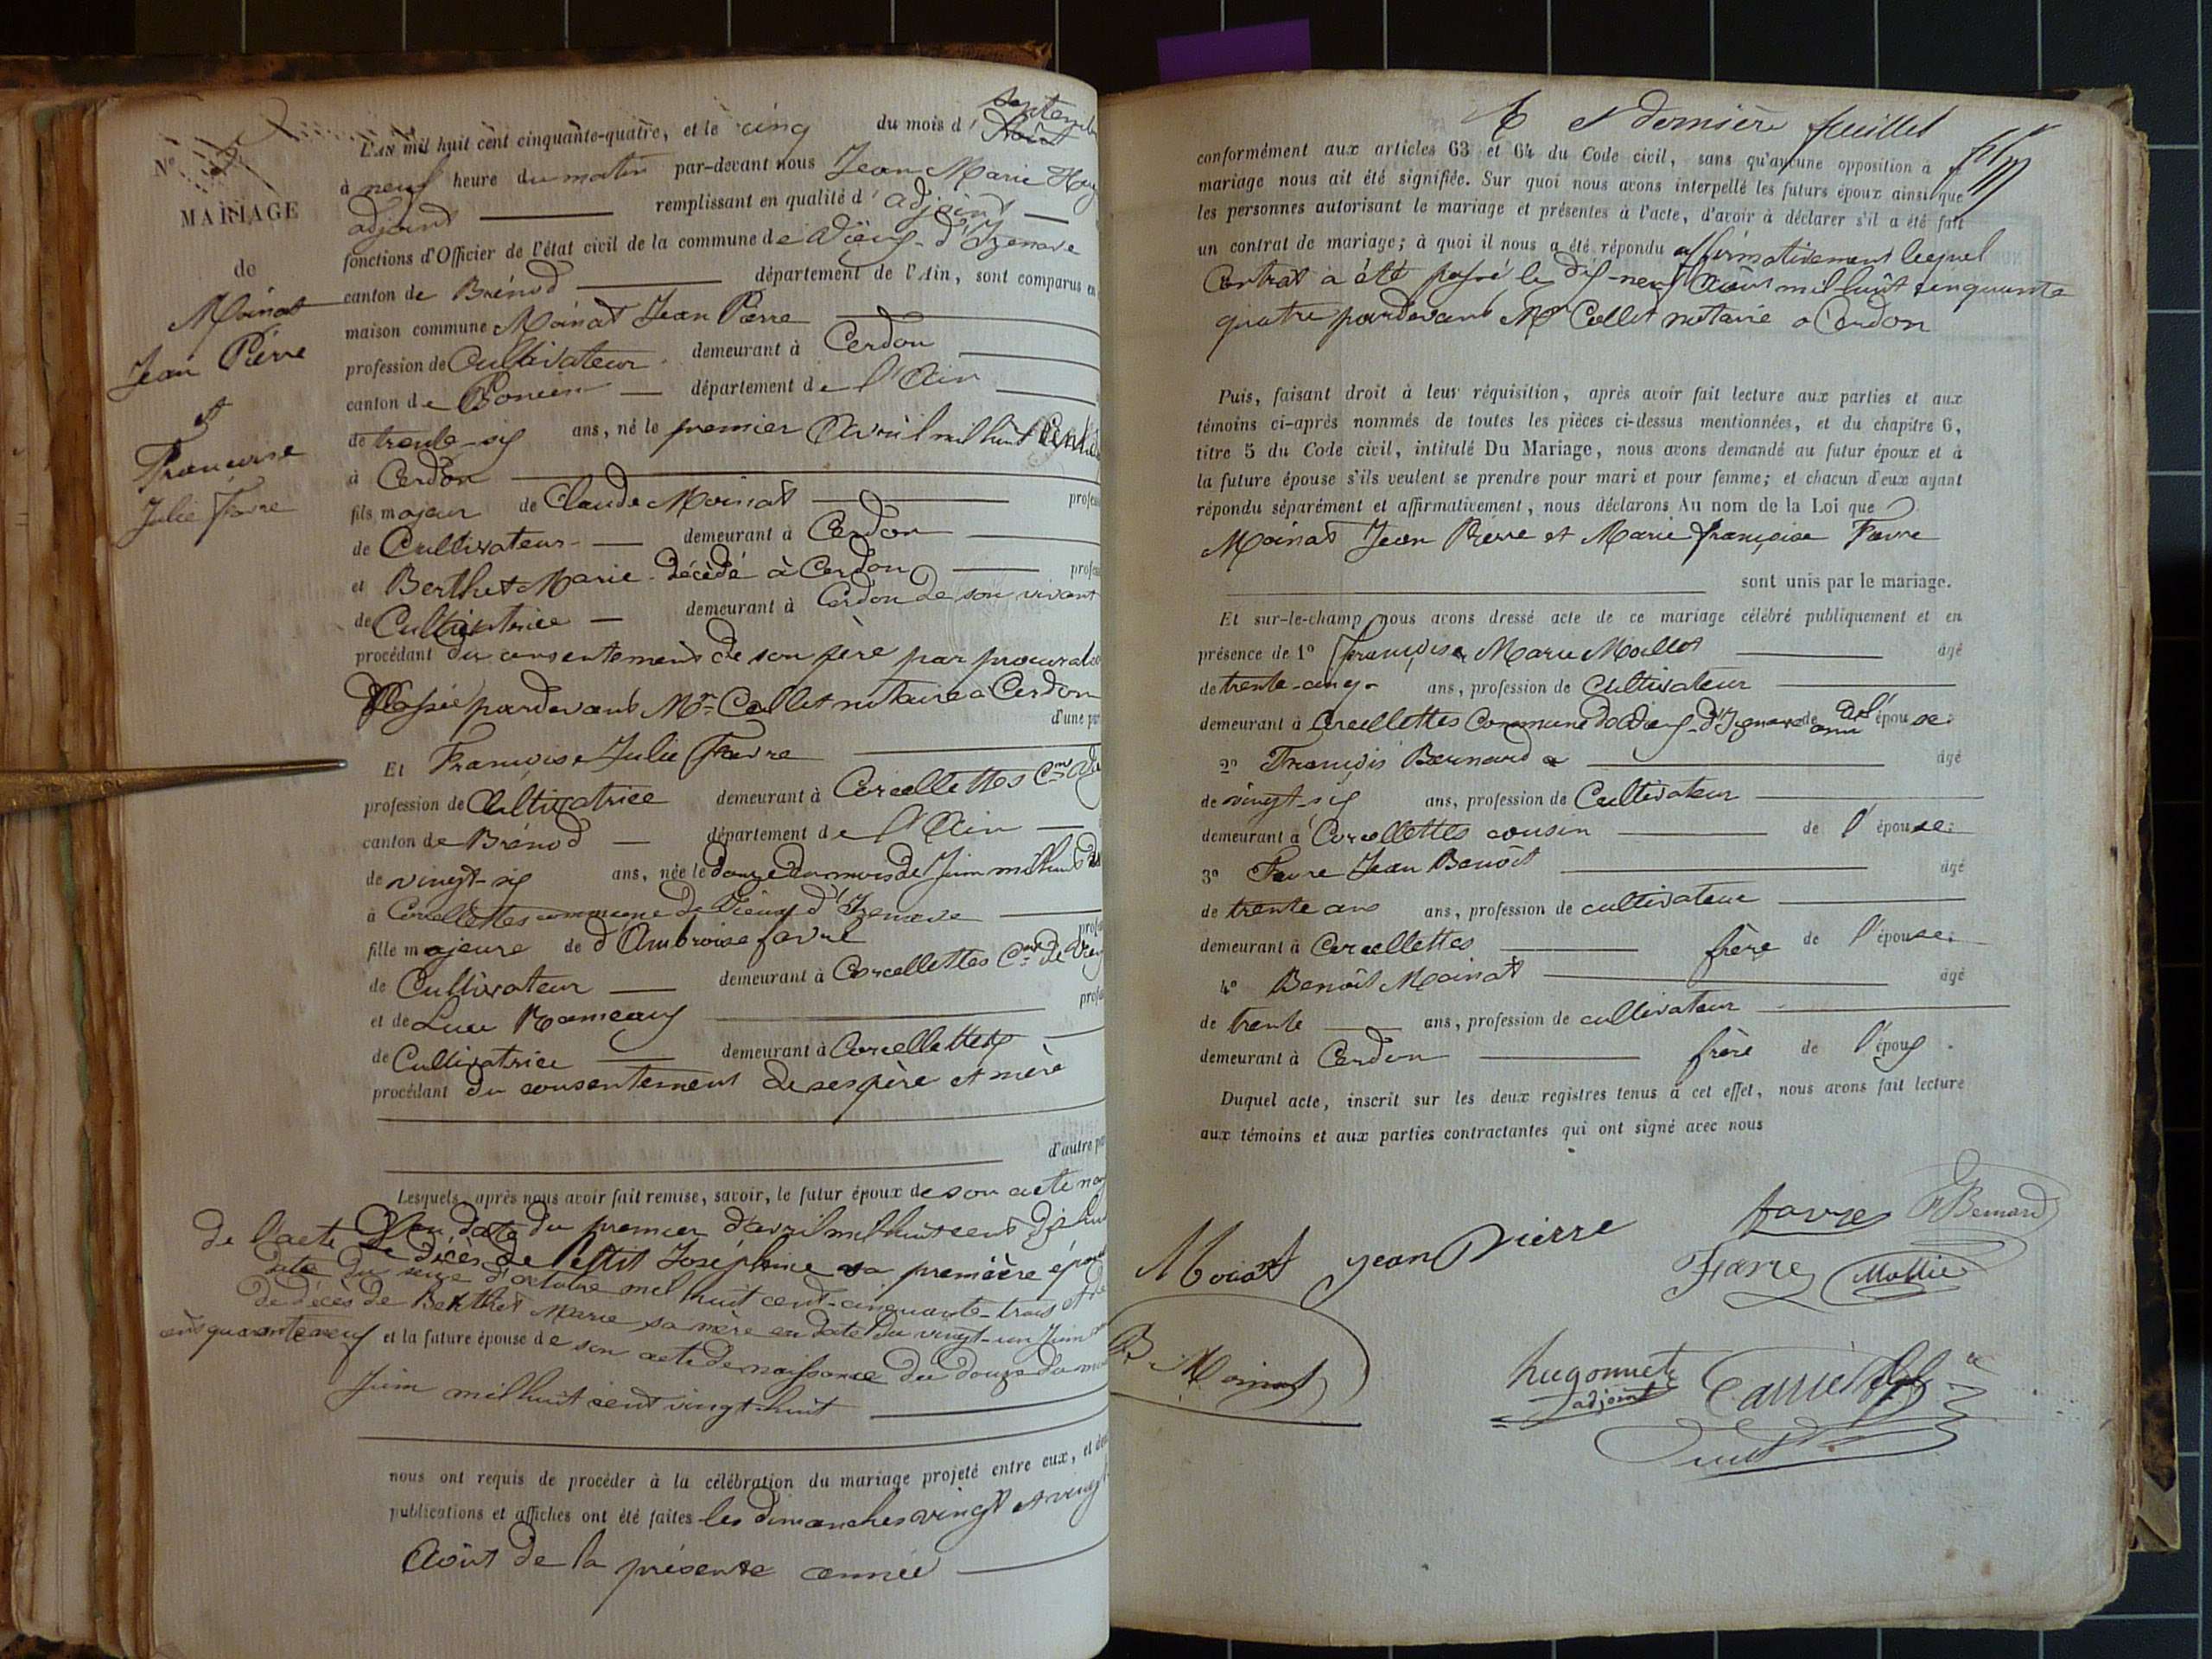 septembre
L'AN mil huit cent cinquante-quatre, et le cinq du mois d' Août
à neuf heure du matin par-devant nous Jean Marie Hug
adjoint remplissant en qualité d' adjoint
fonctions d'Officier de l'état civil de la commune de Vieux-d'Izenave
canton de Brénod département de l'Ain, sont comparus en
maison commune Moinat Jean Pierre
profession de Cultivateur demeurant à Cerdon
canton de Poncin département de l'Ain
de trente-six ans, né le premier Avril mil huit Cent
à Cerdon
fils majeur de Claude Moinat profes
de Cultivateur demeurant à Cerdon
et Berthet Marie décédé à Cerdon profes
de Cultivatrice demeurant à Cerdon de son vivant
procédant du consentement de son père par procuration
Passée pardevant Mr Collet notaire à Cerdon
d'une par
Et Françoise Julie Favre
profession de Cultivatrice demeurant à Corcellettes Cne
canton de Brénod département de l'Ain
de vingt-six ans, née le douze du mois de Juin mil huit
à Corcellettes commune de Vieux d'Izenave
fille majeure de d'Ambroise favre profes
de Cultivateur demeurant à Corcellettes Cne de Vieux
et de Luce Rameaux profes
de Cultivatrice demeurant à Corcellettes
procédant du consentement de ses père et mère
d'autre par
Lesquels après nous avoir fait remise, savoir, le futur époux de son acte
en date du premier d'avril mil huit cent dix huit
de l'acte de décès de Josephine sa première épouse
date du seize d'octobre mil huit cent-cinquante-trois et de
de décès de Berthet Marie sa mère en date du vingt-un Juin
cent quarante neuf et la future épouse de son acte de naissance du douze du mois
Juin mil huit cent vingt-huit
nous ont requis de procéder à la célébration du mariage projeté entre eux, et dont
publications et affiches ont été faites les dimanches vingt et vingt
Août de la présente année
No
MARIAGE
de
Moinat
Jean Pierre
et
Francoise
Julie Favre
6 et dernière feuillet
conformément aux articles 63 et 64 du Code civil, sans qu'aucune opposition à
mariage nous ait été signifiée. Sur quoi nous avons interpellé les futurs époux ainsi que
les personnes autorisant le mariage et présentes à l'acte, d'avoir à déclarer s'il a été fait
un contrat de mariage; à quoi il nous a été répondu affirmativement lequel
Contrat a été passé le dix-neuf Août mil huit cinquante
quatre pardevant Mr Collet notaire à Cerdon
Puis, faisant droit à leur réquisition, après avoir fait lecture aux parties et aux
témoins ci-après nommés de toutes les pièces ci-dessus mentionnées, et du chapitre 6,
titre 5 du Code civil, intitulé Du Mariage, nous avons demandé au futur époux et à
la future épouse s'ils veulent se prendre pour mari et pour femme; et chacun d'eux ayant
répondu séparément et affirmativement, nous déclarons Au nom de la Loi que
Moinat Jean Pierre et Marie françoise Favre
sont unis par le mariage.
Et sur-le-champ nous avons dressé acte de ce mariage célébré publiquement et en
présence de 1o françois Marie Mollet âgé
de trente-cinq ans, profession de Cultivateur
demeurant à Corcellettes Commune de Vieux-d'Izenave ami de l'épouse:
2o François Bernard âgé
de vingt-six ans, profession de Cultivateur
demeurant à Corcellettes cousin de l'épouse:
3o Favre Jean Benoît âgé
de trente ans ans, profession de cultivateur
demeurant à Corcellettes frère de l'épouse:
4o Benoît Moinat âgé
de trente ans, profession de cultivateur
demeurant à Cerdon frère de l'époux.
Duquel acte, inscrit sur les deux registres tenus à cet effet, nous avons fait lecture
aux témoins et aux parties contractantes qui ont signé avec nous
favre Bernard
Moinat Jean Pierre Favre Mollie
B Moinat hugonnet
adjoint